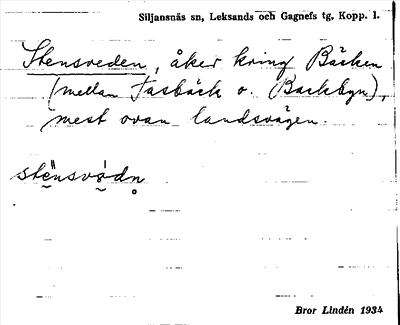 Siljansnäs sn, Leksands och Gagnefs tg, Kopp. l.
Stensveden, åker kring Bäcken
(mellan Tasbäck o. Backbyn),
mest ovan landsvägen.
Bror Lindén 1934